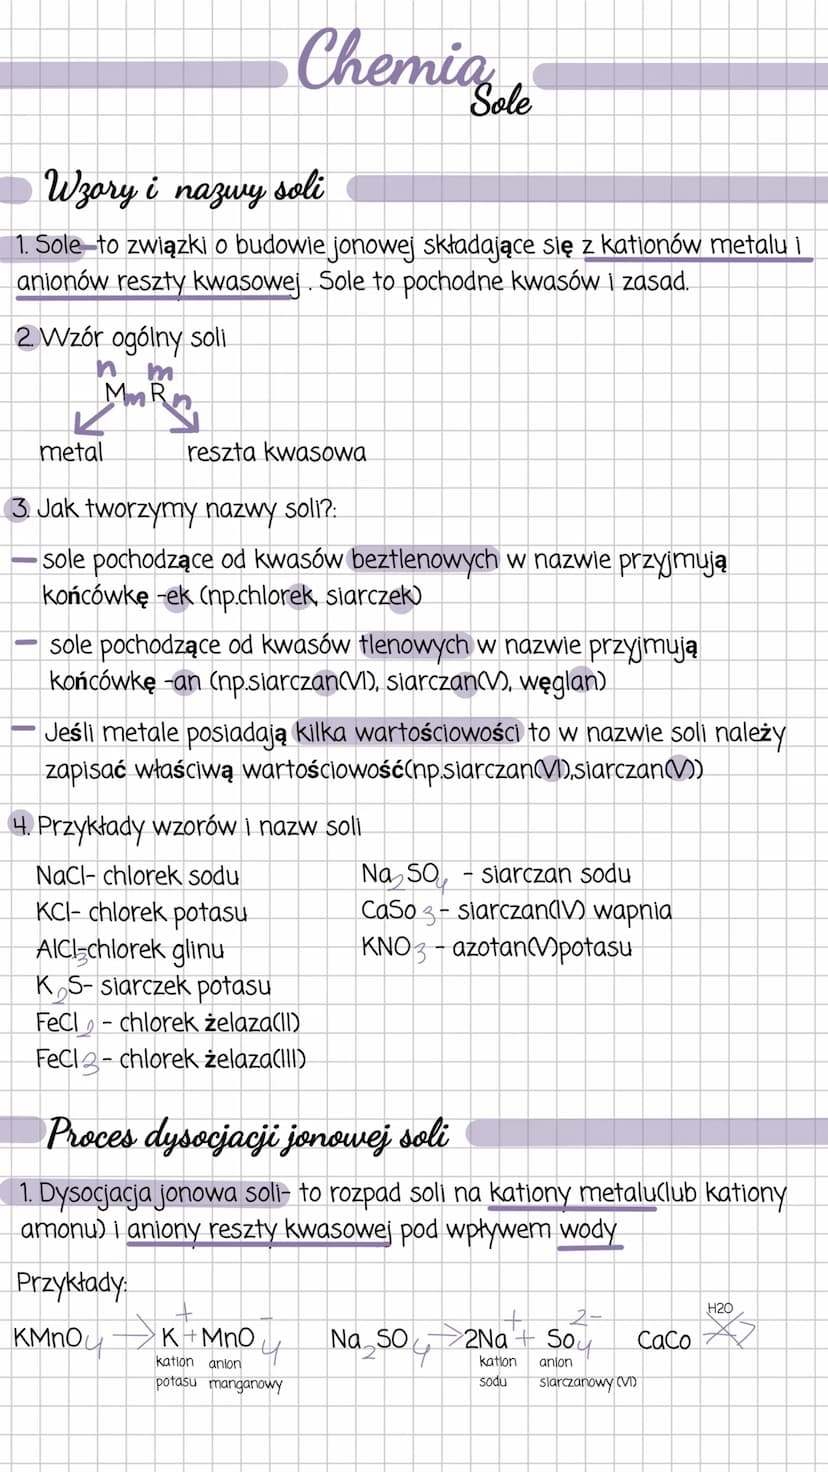 Chemia
Sole
Wzory i nazwy soli
1. Sole-to związki o budowie jonowej składające się z kationów metalu i
anionów reszty kwasowej . Sole to pochodne kwasów i zasad.
2. Wzór ogólny soli
n m
MmRn
metal reszta kwasowa
3. Jak tworzymy nazwy soli?:
- sole pochodzące od kwasów beztlenowych w nazwie przyjmują
końcówkę -ek (np.chlorek, siarczek)
- sole pochodzące od kwasów tlenowych w nazwie przyjmują
końcówkę -an (np.siarczan(VI), siarczan(V), węglan)
- Jeśli metale posiadają kilka wartościowości to w nazwie soli należy
zapisać właściwą wartościowość(np.siarczan(VI),siarczan(V))
4. Przykłady wzorów i nazw soli
NaCl- chlorek sodu
KCl- chlorek potasu
AlCl3-chlorek glinu
K2S- siarczek potasu
FeCl2 - chlorek żelaza(II)
FeCl3 - chlorek żelaza(III)
Na2SO4 - siarczan sodu
CaSo3 - siarczan(IV) wapnia
KNO3 - azotan(V)potasu
Proces dysocjacji jonowej soli
1. Dysocjacja jonowa soli- to rozpad soli na kationy metalu(lub kationy
amonu) i aniony reszty kwasowej pod wpływem wody
Przykłady:
KMnO4 → K+ + MnO4- Na2SO4 → 2Na+ + So4 2- CaCo H2O
kation anion kation anion
potasu manganowy sodu siarczanowy (VI)